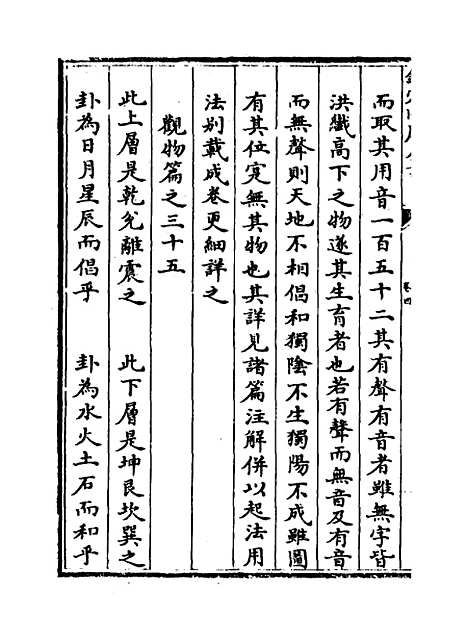 而取其用音一百五十二其有聲有音者雖無字皆
洪纖高下之物遂其生育者也若有聲而無音及有音
而無聲則天地不相倡和獨陰不生獨陽不成雖圖
有其位寔無其物也其詳見諸篇注解併以起法用
法别載成卷更細詳之
觀物篇之三十五
此上層是乾兌離震之 此下層是坤艮坎巽之
卦為日月星辰而倡乎 卦為水火土石而和乎